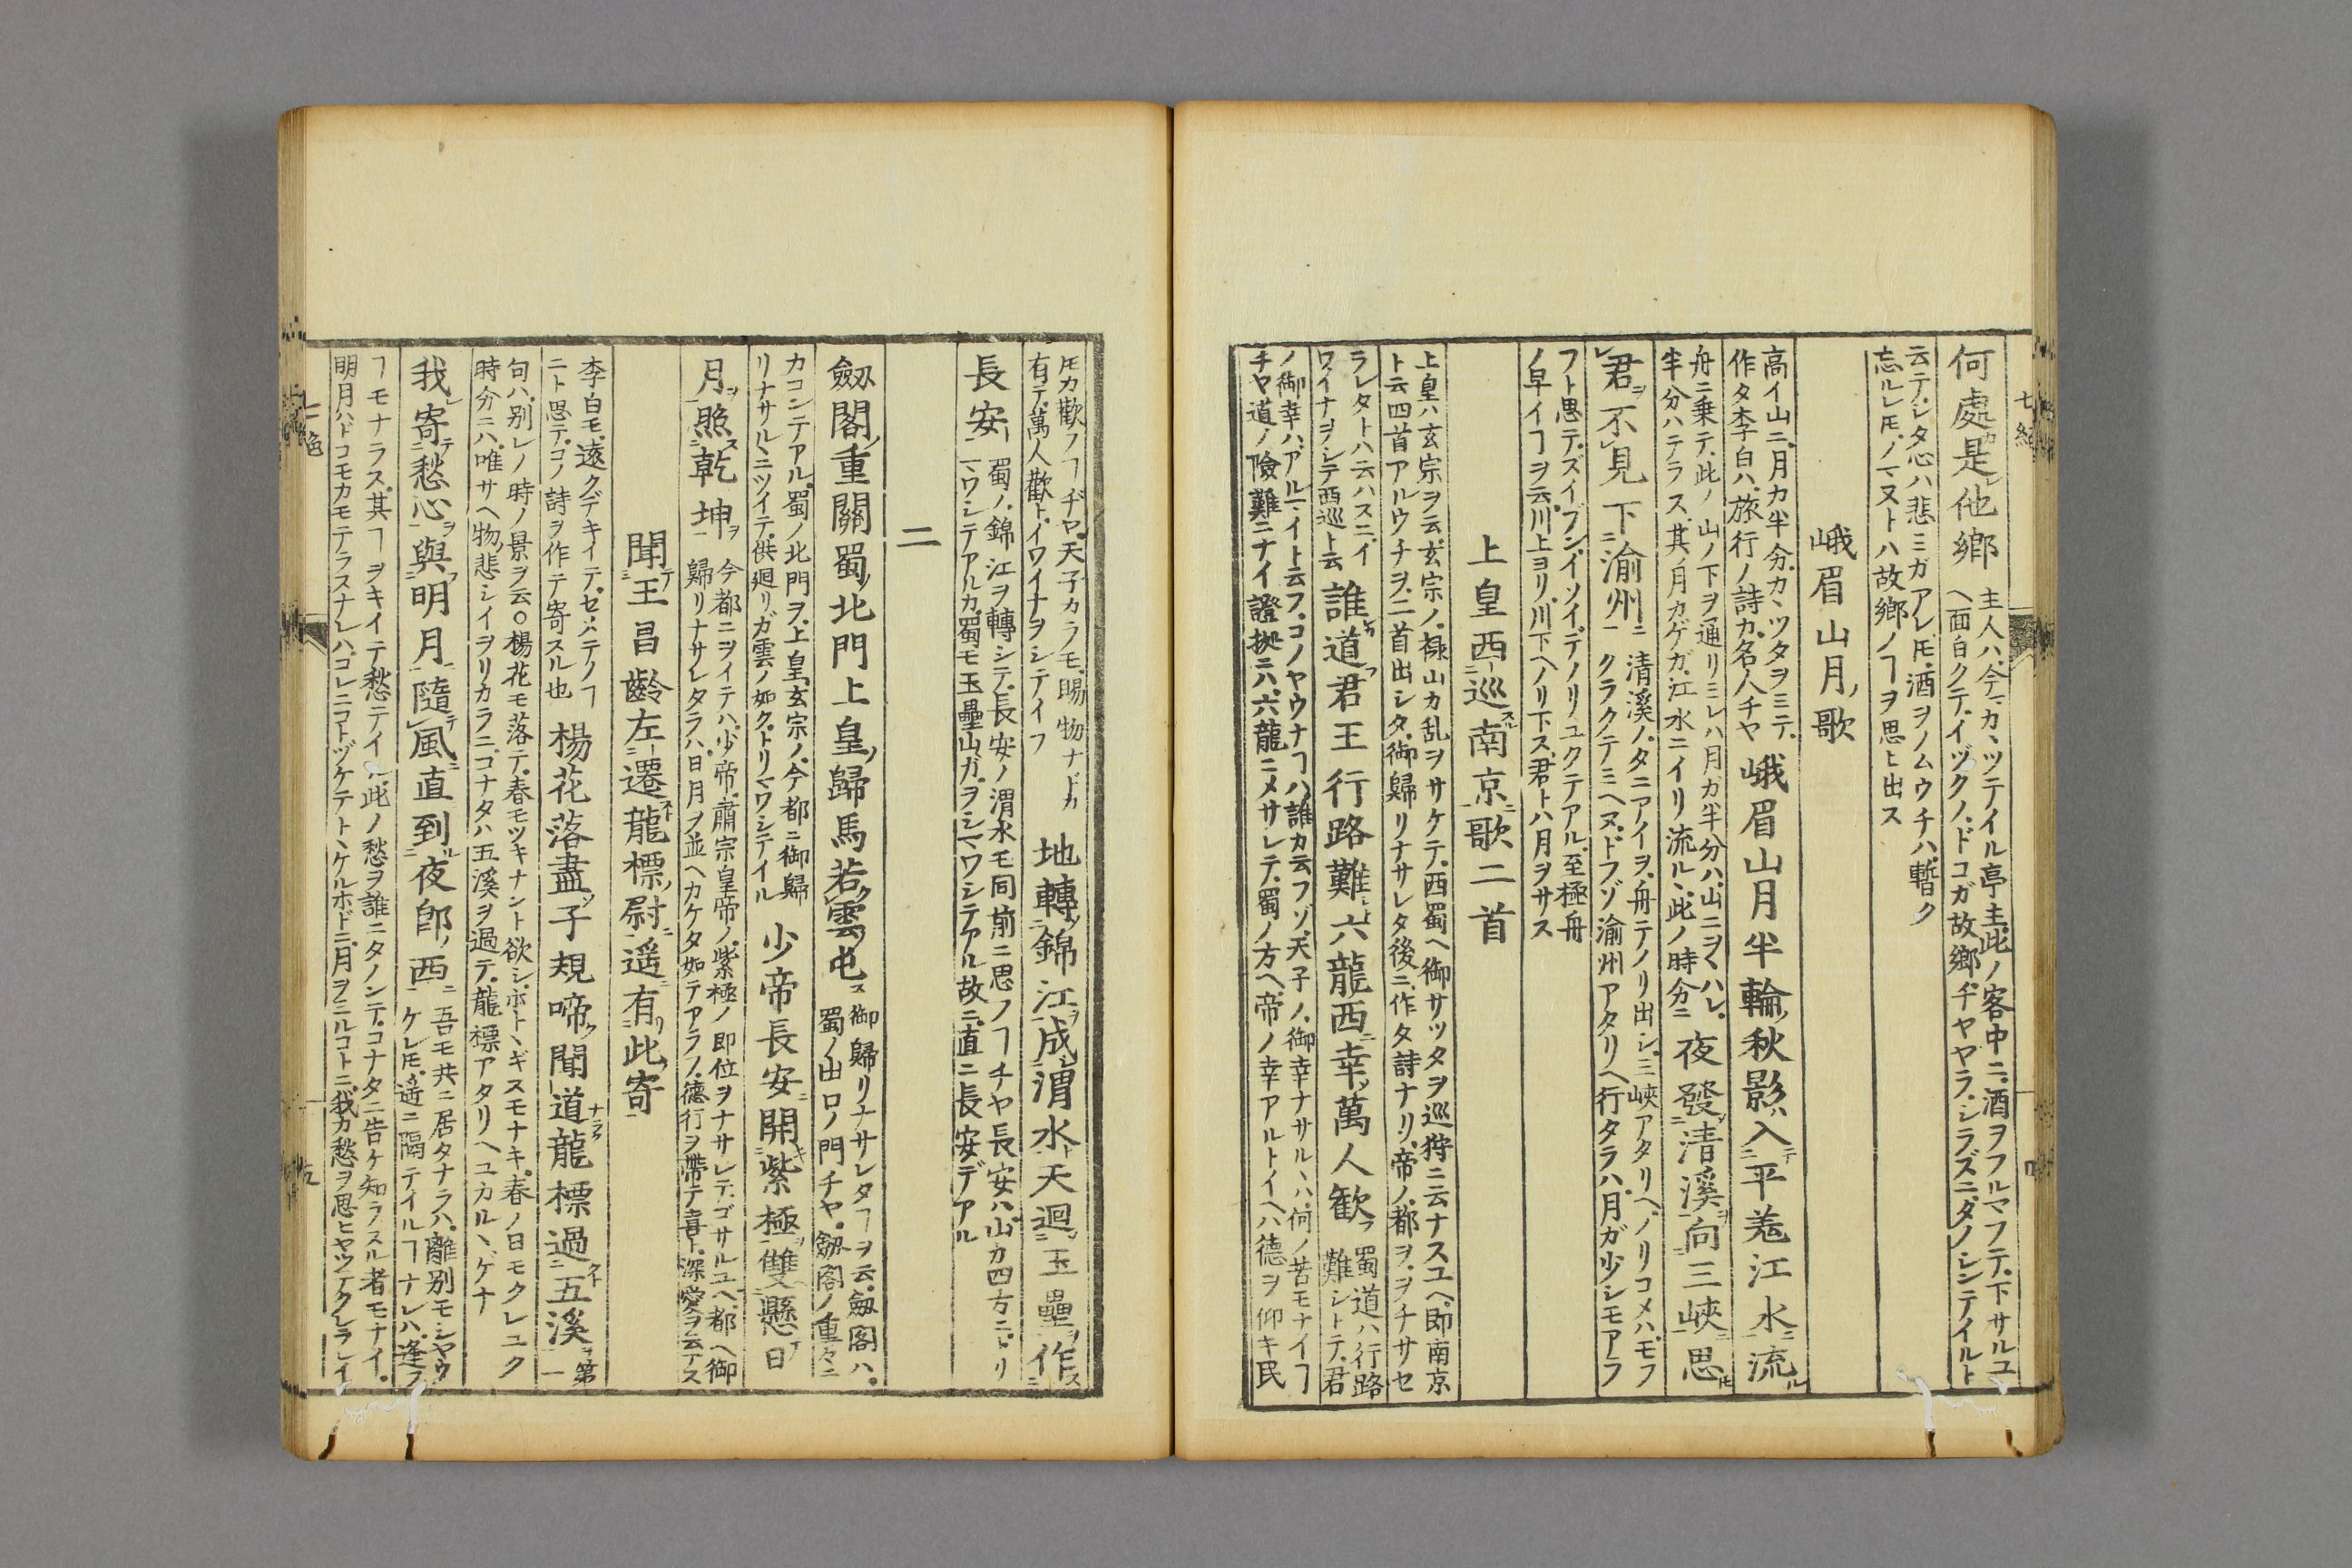 何處是他鄉 主人ハ今カヽツテイル亭主此ノ客中ニ酒ヲフルマフテ下サルユ
ヘ面白クテイヅクノドコガ故郷ヂヤヤラシラズニタノシンテイルト
云テシタ心ハ悲ミガアレ𪜈酒ヲノムウチハ暫ク
忘ルレ𪜈ノマヌトハ故郷ノヿヲ思ヒ出ス
峨眉山月ノ歌
高イ山ニ月カ半分カヽツタヲミテ
作タ李白ハ旅行ノ詩カ名人チヤ
峨眉山月半輪ノ秋影ハ入テ平羗江水ニ流ル
舟ニ乗テ此ノ山ノ下ヲ通リミレハ月ガ半分ハ山ニヲヽハレ
半分ハテラス其ノ月カゲガ江水ニイリ流ルヽ此ノ時分ニ
夜發シ清溪ヲ向三峽ニ思𪜈
君ヲ不見下渝州ニ 清溪ノタニアイヲ舟テノリ出シ三峽アタリヘノリコメハモフ
クラクテミヘヌドフゾ渝州アタリヘ行タラハ月ガ少シモアラフ
フト思テズイブンイソイデノリユクテアル至極舟
ノ早イヿヲ云川上ヨリ川下ヘノリ下ス君トハ月ヲサス
上皇西ニ巡スル南京ニ歌二首
上皇ハ玄宗ヲ云玄宗ノ禄山カ乱ヲサケテ西蜀ヘ御サツタヲ巡狩ニ云ナスユヘ即南京
ト云四首アルウチヲ二首出シタ御歸リナサレタ後ニ作タ詩ナリ帝ノ都ヲヲチサセ
ラレタトハ云ハスニイ
ワイナヲシテ西巡ト云
誰カ道フ君王行路難シト六龍西ニ幸ノ萬人歓フ 蜀道ハ行路
難シトテ君
ノ御幸ハアルマイト云フコノヤウナヿハ誰カ云フゾ天子ノ御幸ナサルヽハ何ノ苦モナイヿ
チヤ道ノ險難ニナイ證拠ニハ六龍ニメサレテ蜀ノ方ヘ帝ノ幸アルトイヘハ德ヲ仰キ民
𪜈カ歡フヿヂヤ天子カラモ賜物ナドカ
有テ萬人歡トイワイナヲシテイフ
地轉ノ錦江ヲ成渭水ト天迴玉壘ヲ作ス
長安ト 蜀ノ錦江ヲ轉シテ長安ノ渭水モ同前ニ思フヿチヤ長安ハ山カ四方ニトリ
マワシテアルカ蜀モ玉壘山ガヲシマワシテアル故ニ直ニ長安デアル
二
劔閣ノ重關蜀ノ北門上皇ノ歸馬若ク雲ノ屯ス 御歸リナサレタヿヲ云劔閣ハ
蜀ノ出口ノ門チヤ劔閣ノ重々ニ
カコンテアル蜀ノ北門ヲ上皇玄宗ノ今都ニ御歸
リナサルヽニツイテ供廻リガ雲ノ如クトリマワシテイル
少帝長安ニ開キ紫極ヲ雙懸テ日
月ヲ照ス乾坤ヲ 今都ニヲイテハ少帝肅宗皇帝ノ紫極ノ即位ヲナサレテゴサルユヘ都ヘ御
歸リナサレタラハ日月ヲ並ヘカケタ如テアラフ德行ヲ帶テ喜ト深愛ヲ云アス
聞テ王昌齡左遷スト龍標ノ尉ニ遥ニ有リ此寄
李白モ遠クデキイテセメテノヿ
ニト思テコノ詩ヲ作テ寄スル也
楊花落盡シ子規啼ク聞道ナラク龍標過クト五溪ヲ 第
一
句ハ別レノ時ノ景ヲ云○楊花モ落テ春モツキナント欲シホトヽギスモナキ春ノ日モクレユク
時分ニハ唯サヘ物悲シイヲリカラニコナタハ五溪ヲ過テ龍標アタリヘユカルヽゲナ
我寄テ愁心ヲ與フ明月ニ隨テ風ニ直到ル夜郎ノ西ニ 吾モ共ニ居タナラハ離別モシヤウ
ケレ𪜈遥ニ隔テイルヿナレハ逢フ
ヿモナラス其ヿヲキイテ愁テイル此ノ愁ヲ誰ニタノンテコナタニ告ケ知ラスル者モナイ
明月ハドコモカモテラスナレハコレニコトヅケテトヽケルホドニ月ヲミルコトニ我カ愁ヲ思ヒヤツテクレラレイ